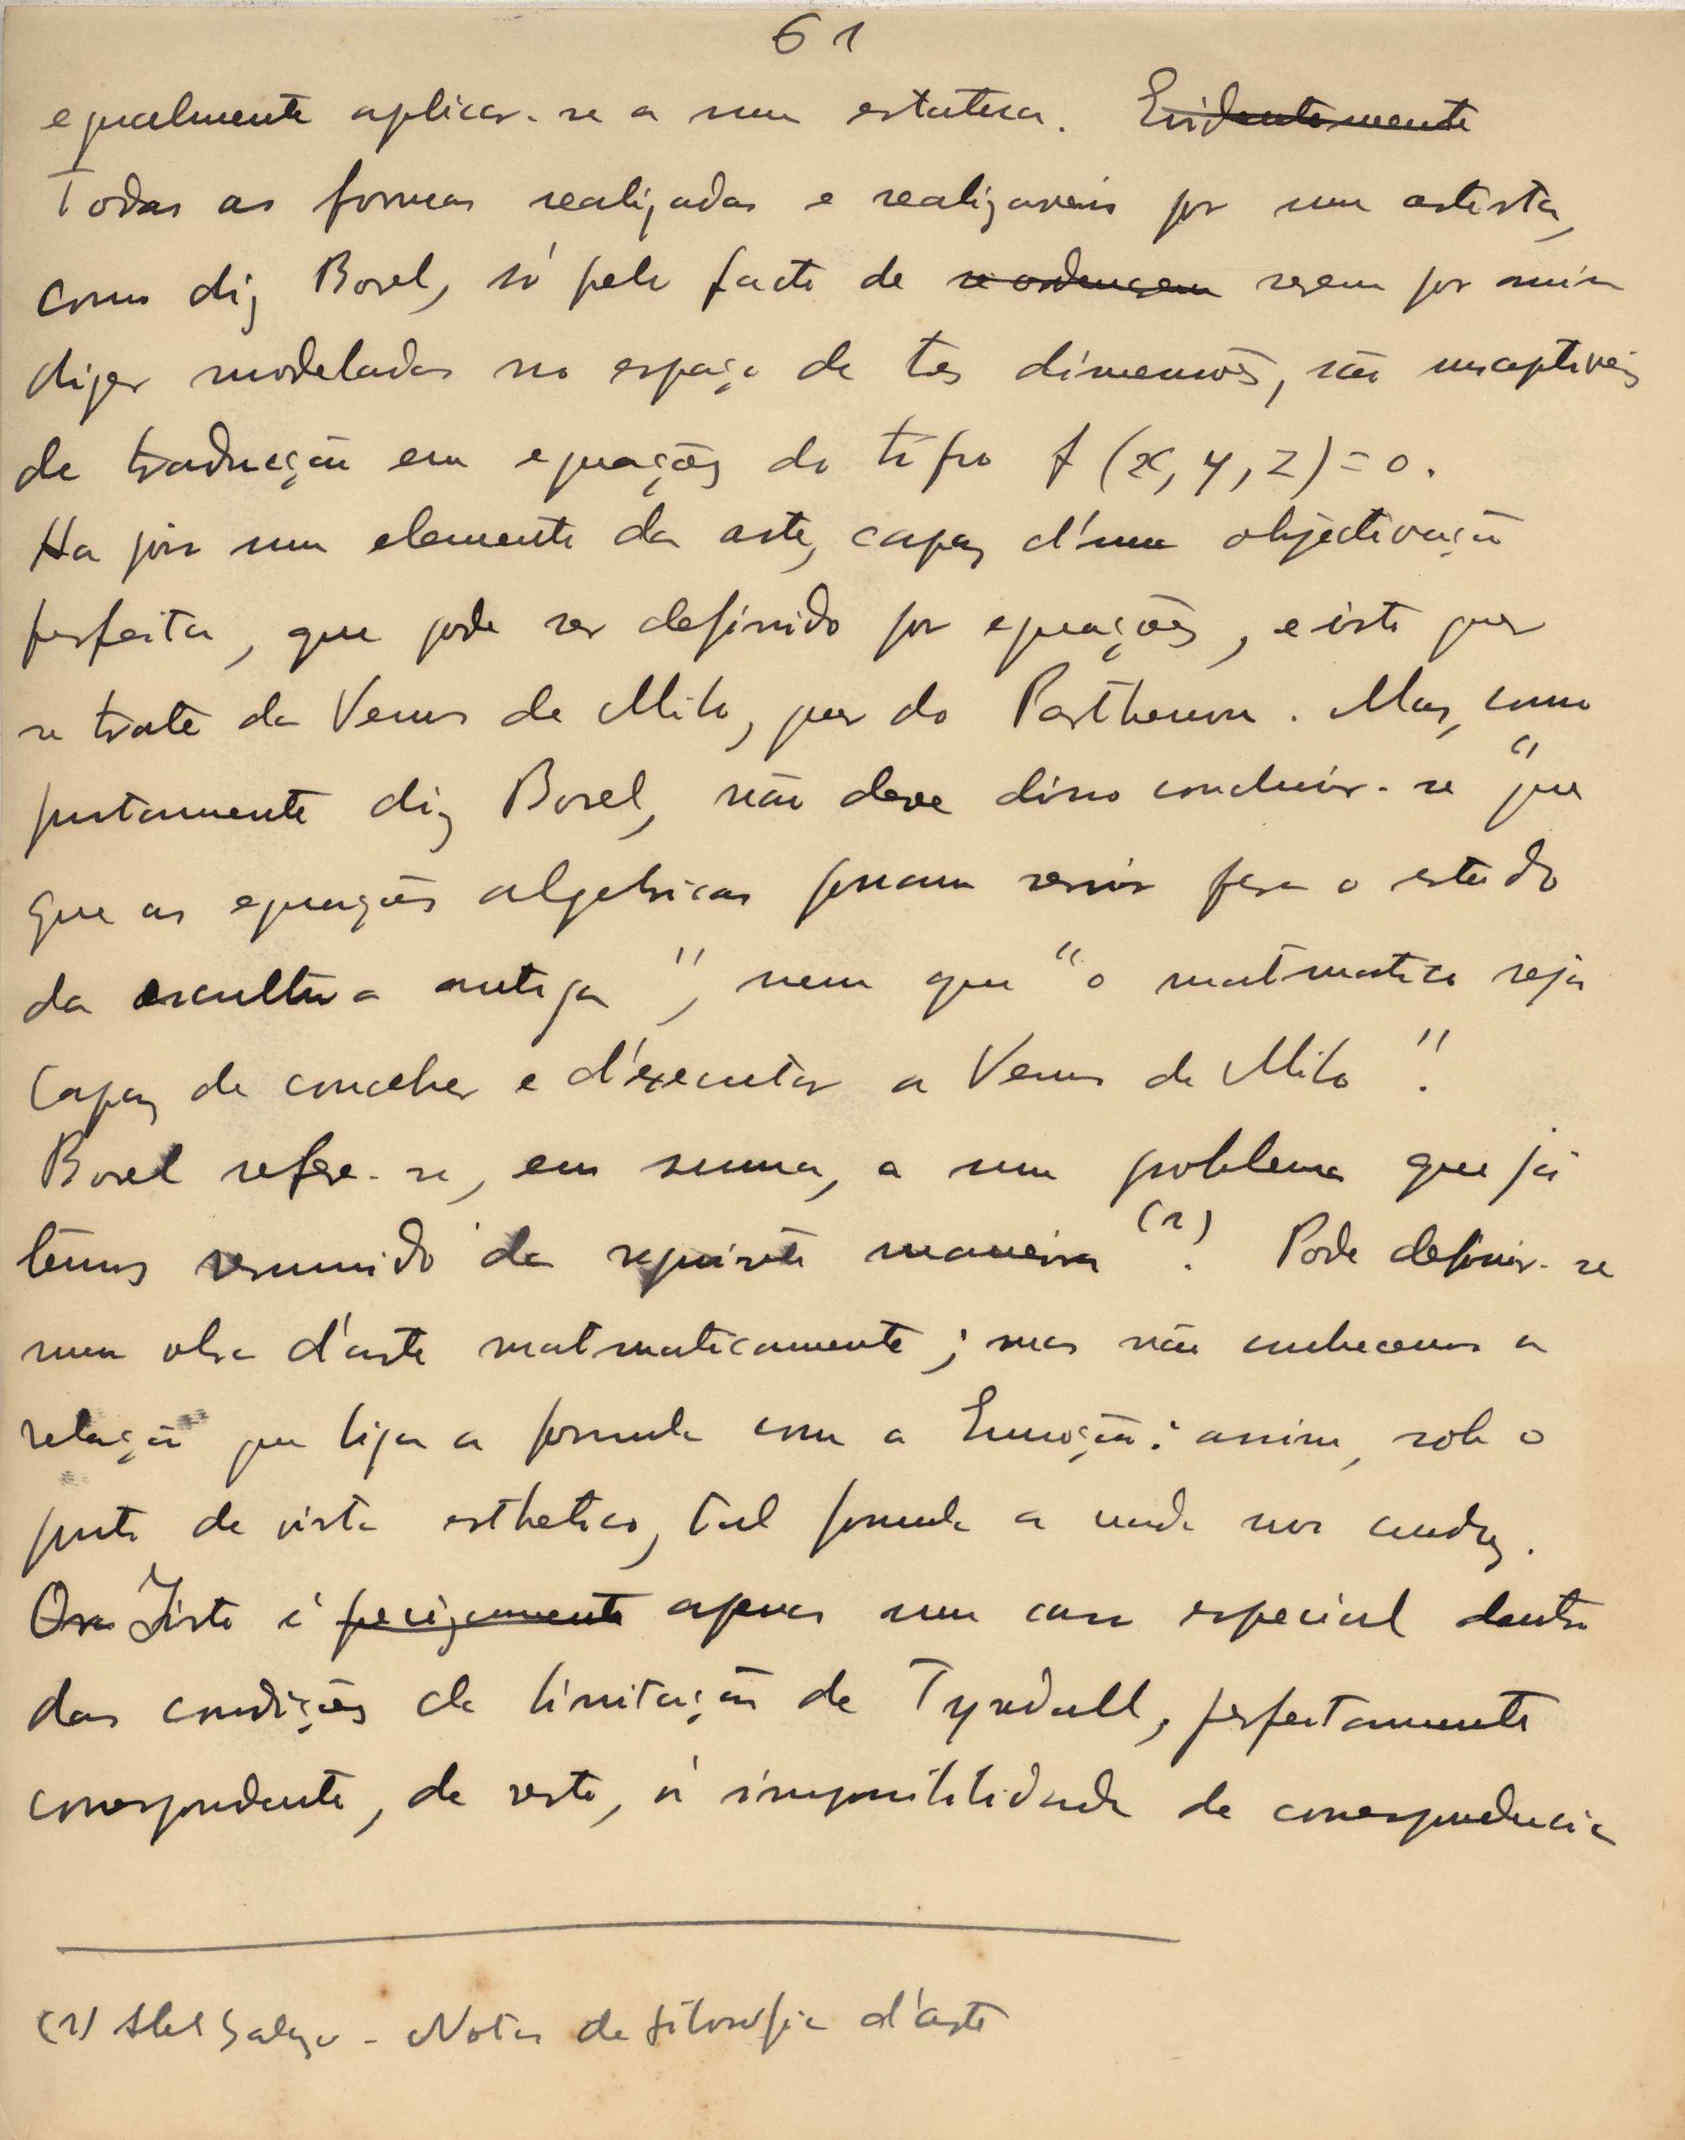 61
egualmente aplicar-se a uma estatua. Evidentemente
Todas as formas realizadas e realizaveis por um artista,
como diz Borel, só pelo facto de se ordenarem serem por assim
dizer modeladas no espaço de tres dimensões, são susceptiveis
de traducção em equações do tipo f (x, y, z) = 0.
Ha pois um elemento da arte, capaz d'uma objectivação
perfeita, que pode ser definido por equações, e isto quer
se trate da Venus de Milo, quer do Parthenon. Mas, como
justamente diz Borel, não deve disso concluir-se "que
que as equações algebricas possam servir para o estudo
da escultura antiga", nem que "o matematico seja
capaz de conceber e d'executar a Venus de Milo".
Borel refere-se, em summa, a um problema que já
temos resumido da seguinte maneira (1). Pode definir-se
uma obra d'arte matematicamente; mas não conhecemos a
relação que liga a formula com a Emoção: assim, sob o
ponto de vista esthetico, tal formula a nada nos conduz.
Ora Isto é precizamente apenas um caso especial dentro
das condições de limitação de Tyndall, perfeitamente
correspondente, de resto, á impossibilidade de correspondencia
(1) Abel Salazar - Notas de filosofia d'arte